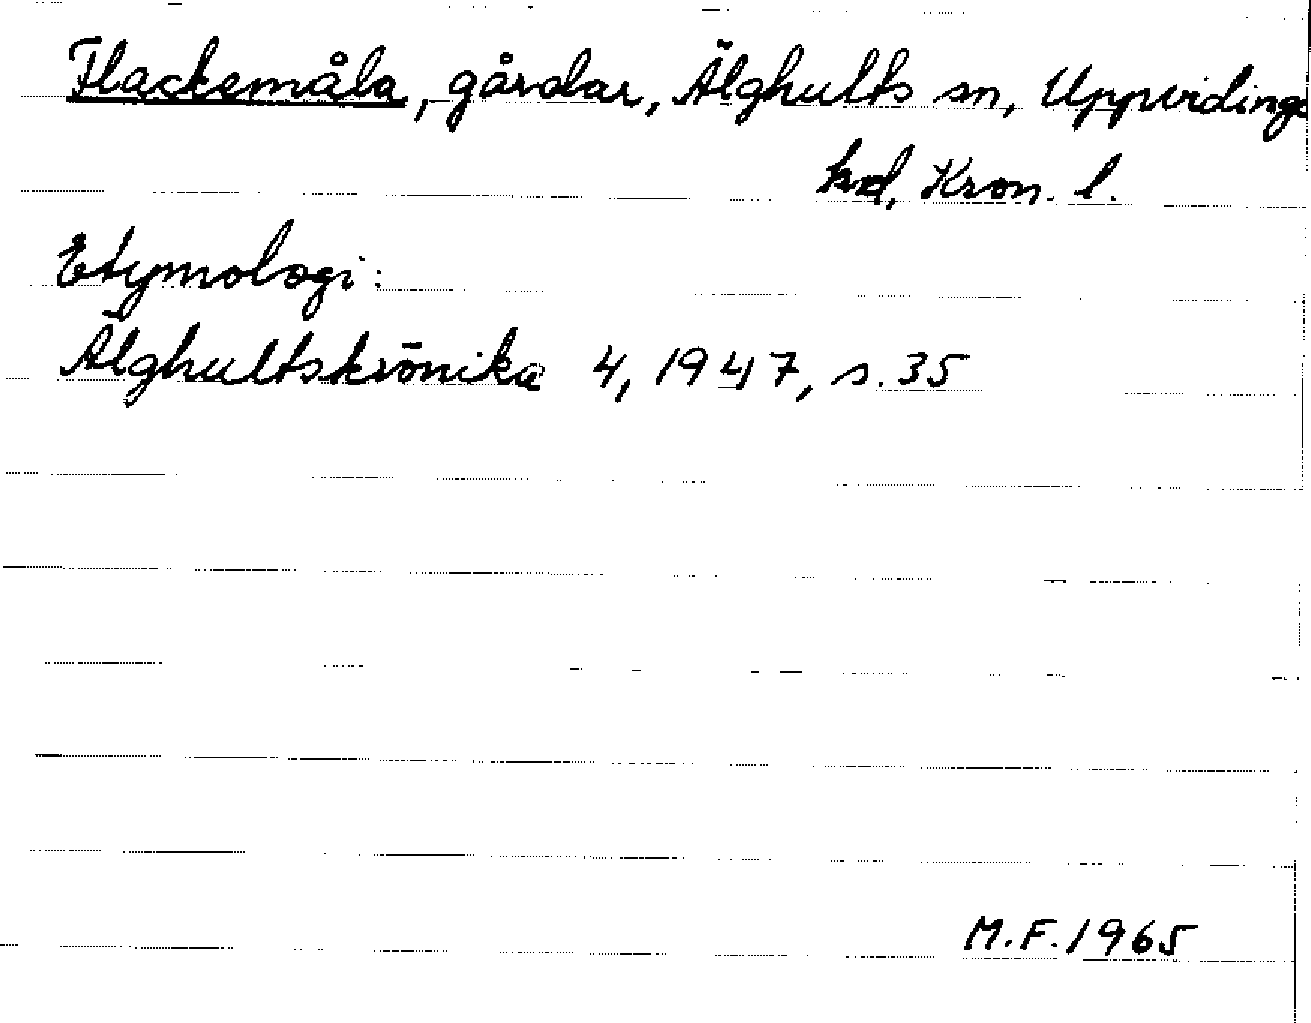 Flackemåla, gårdar, Älghults sn, Uppvidinge
hd, Kron. l.
Etymologi:
Älghultskrönika 4, 1947, s. 35
M.F. 1965